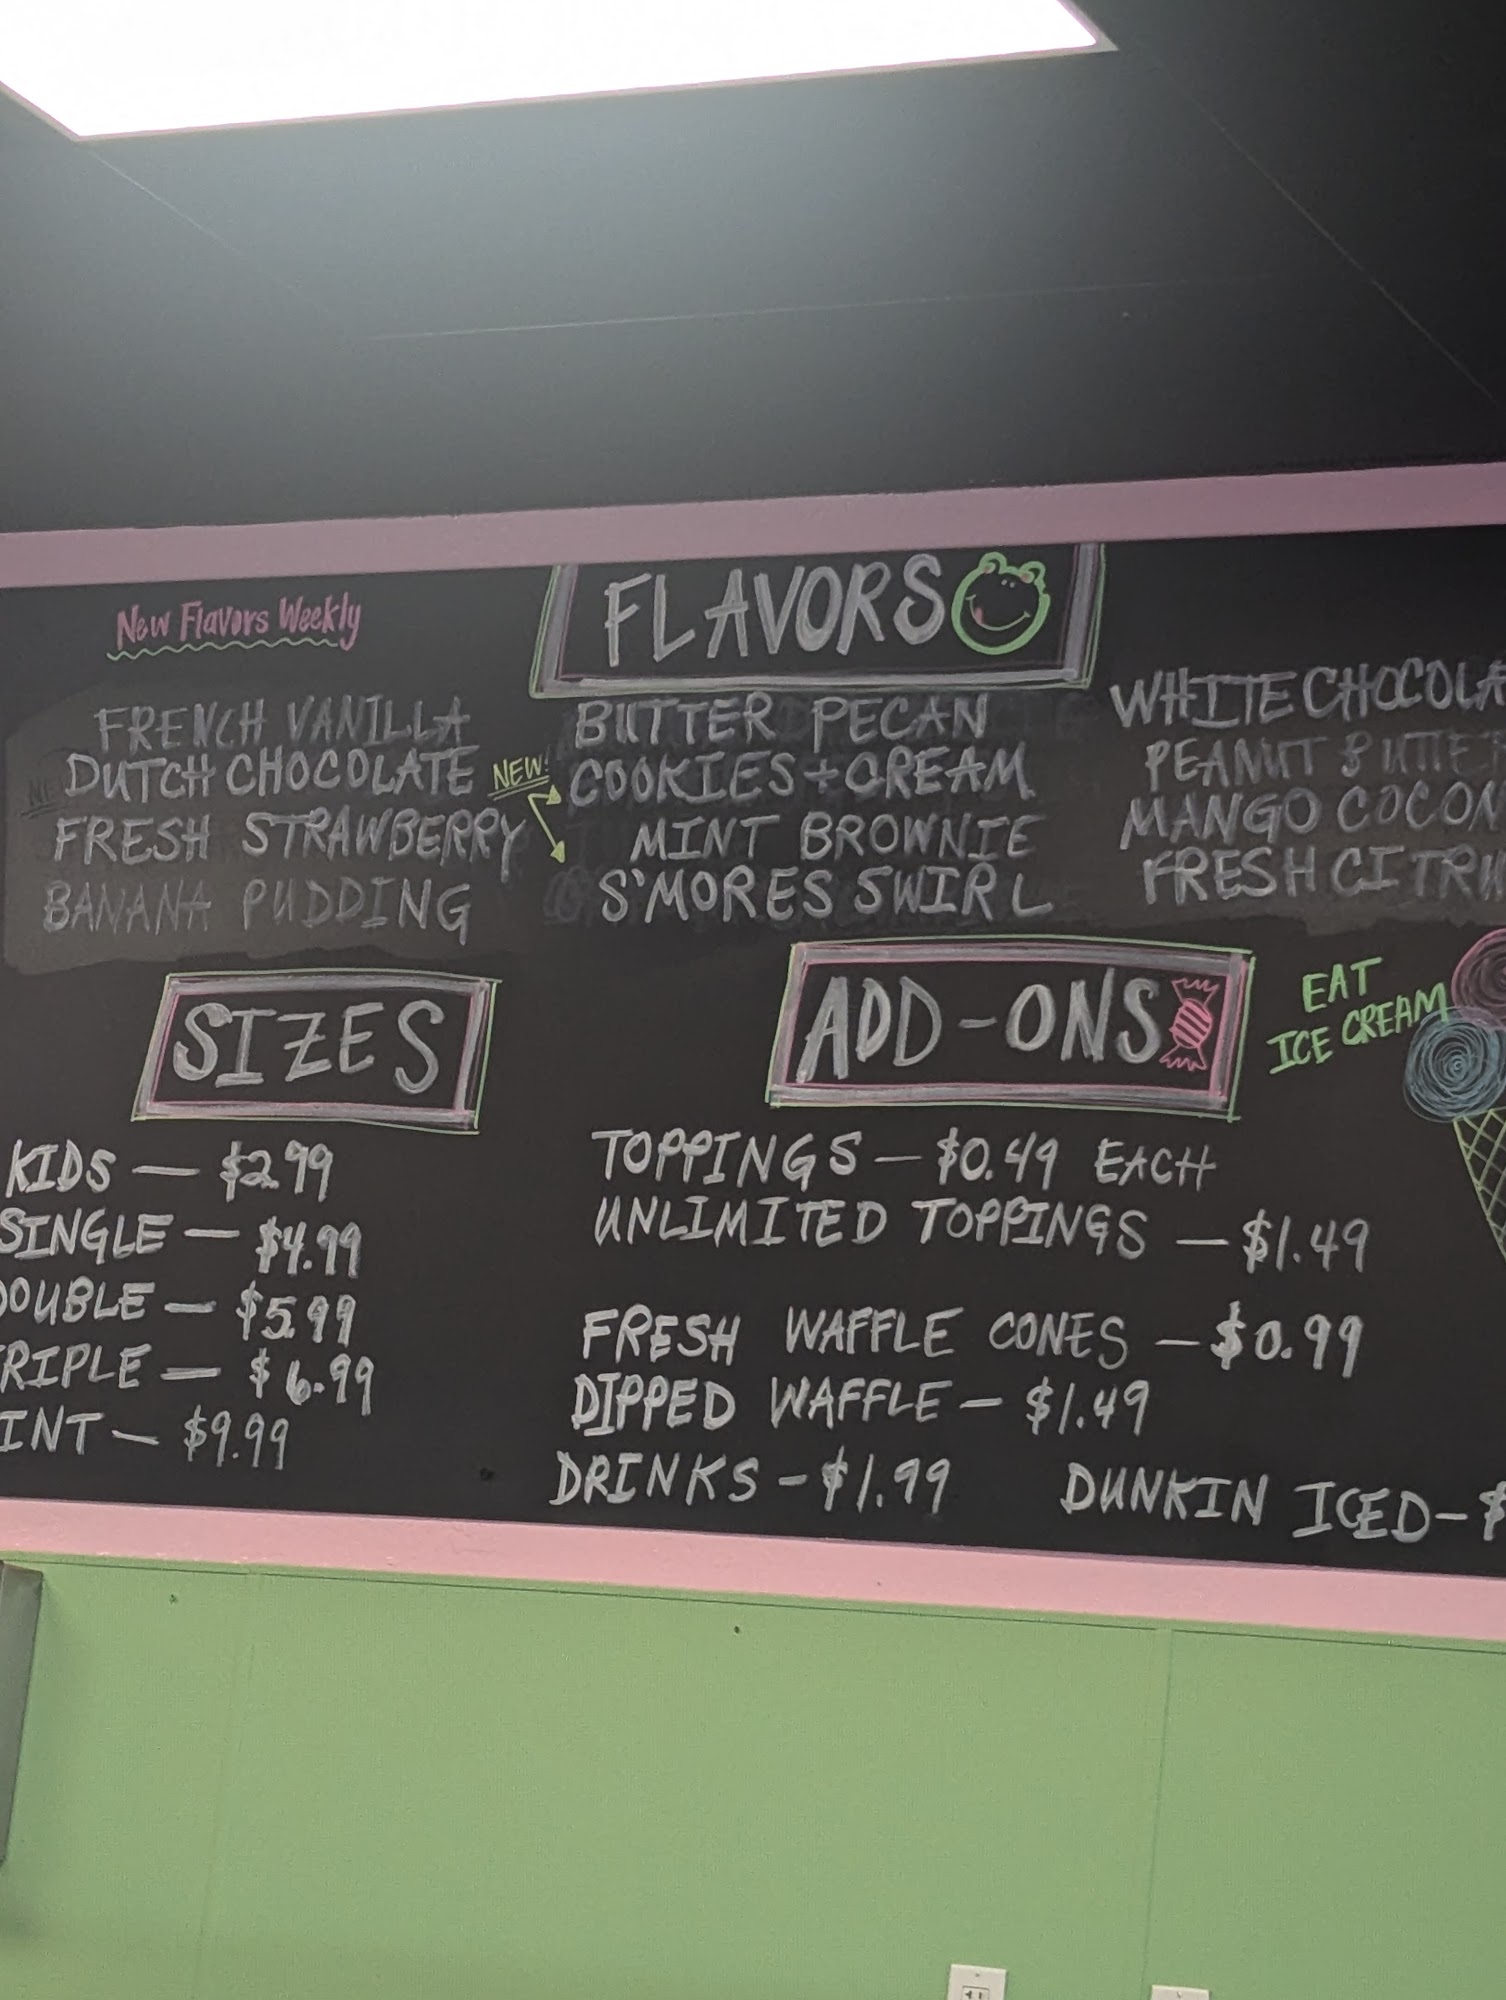 New Flavors Weekly
FLAVORS
FRENCH VANILLA
DUTCH CHOCOLATE
FRESH STRAWBERRY
BANANA PUDDING
NEW!
BUTTER PECAN
COOKIES + CREAM
MINT BROWNIE
S'MORES SWIRL
WHITE CHOCOLA
PEANUT BUTTE
MANGO COCON
FRESH CITRU
SIZES
KIDS — $2.99
SINGLE — $4.99
DOUBLE — $5.99
RIPLE — $6.99
INT — $9.99
ADD-ONS
TOPPINGS — $0.49 EACH
UNLIMITED TOPPINGS — $1.49
FRESH WAFFLE CONES — $0.99
DIPPED WAFFLE — $1.49
DRINKS - $1.99
DUNKIN ICED - $
EAT
ICE CREAM